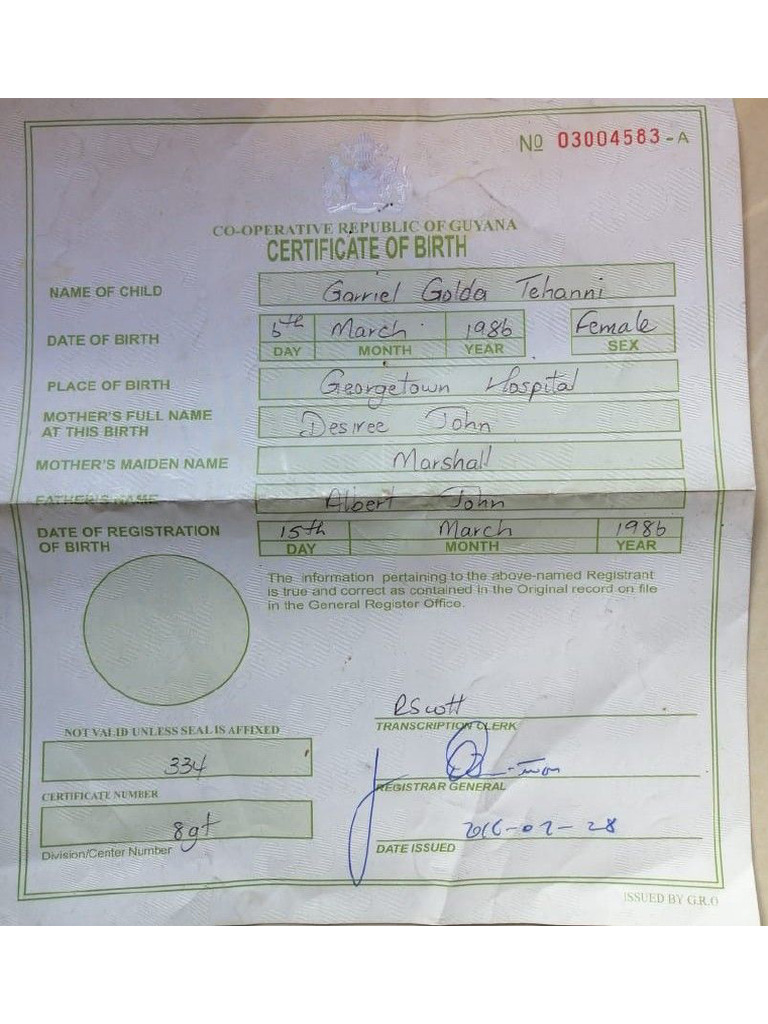 Nº 03004583-A
CO-OPERATIVE REPUBLIC OF GUYANA
CERTIFICATE OF BIRTH
NAME OF CHILD Garriel Golda Tehanni
DATE OF BIRTH 6th March 1986 Female
DAY MONTH YEAR SEX
PLACE OF BIRTH Georgetown Hospital
MOTHER'S FULL NAME
AT THIS BIRTH Desiree John
MOTHER'S MAIDEN NAME Marshall
FATHER'S NAME Albert John
DATE OF REGISTRATION
OF BIRTH 15th March 1986
DAY MONTH YEAR
The information pertaining to the above-named Registrant
is true and correct as contained in the Original record on file
in the General Register Office.
RScott
TRANSCRIPTION CLERK
NOT VALID UNLESS SEAL IS AFFIXED
334
CERTIFICATE NUMBER
REGISTRAR GENERAL
8gt
Division/Center Number
DATE ISSUED
ISSUED BY G.R.O